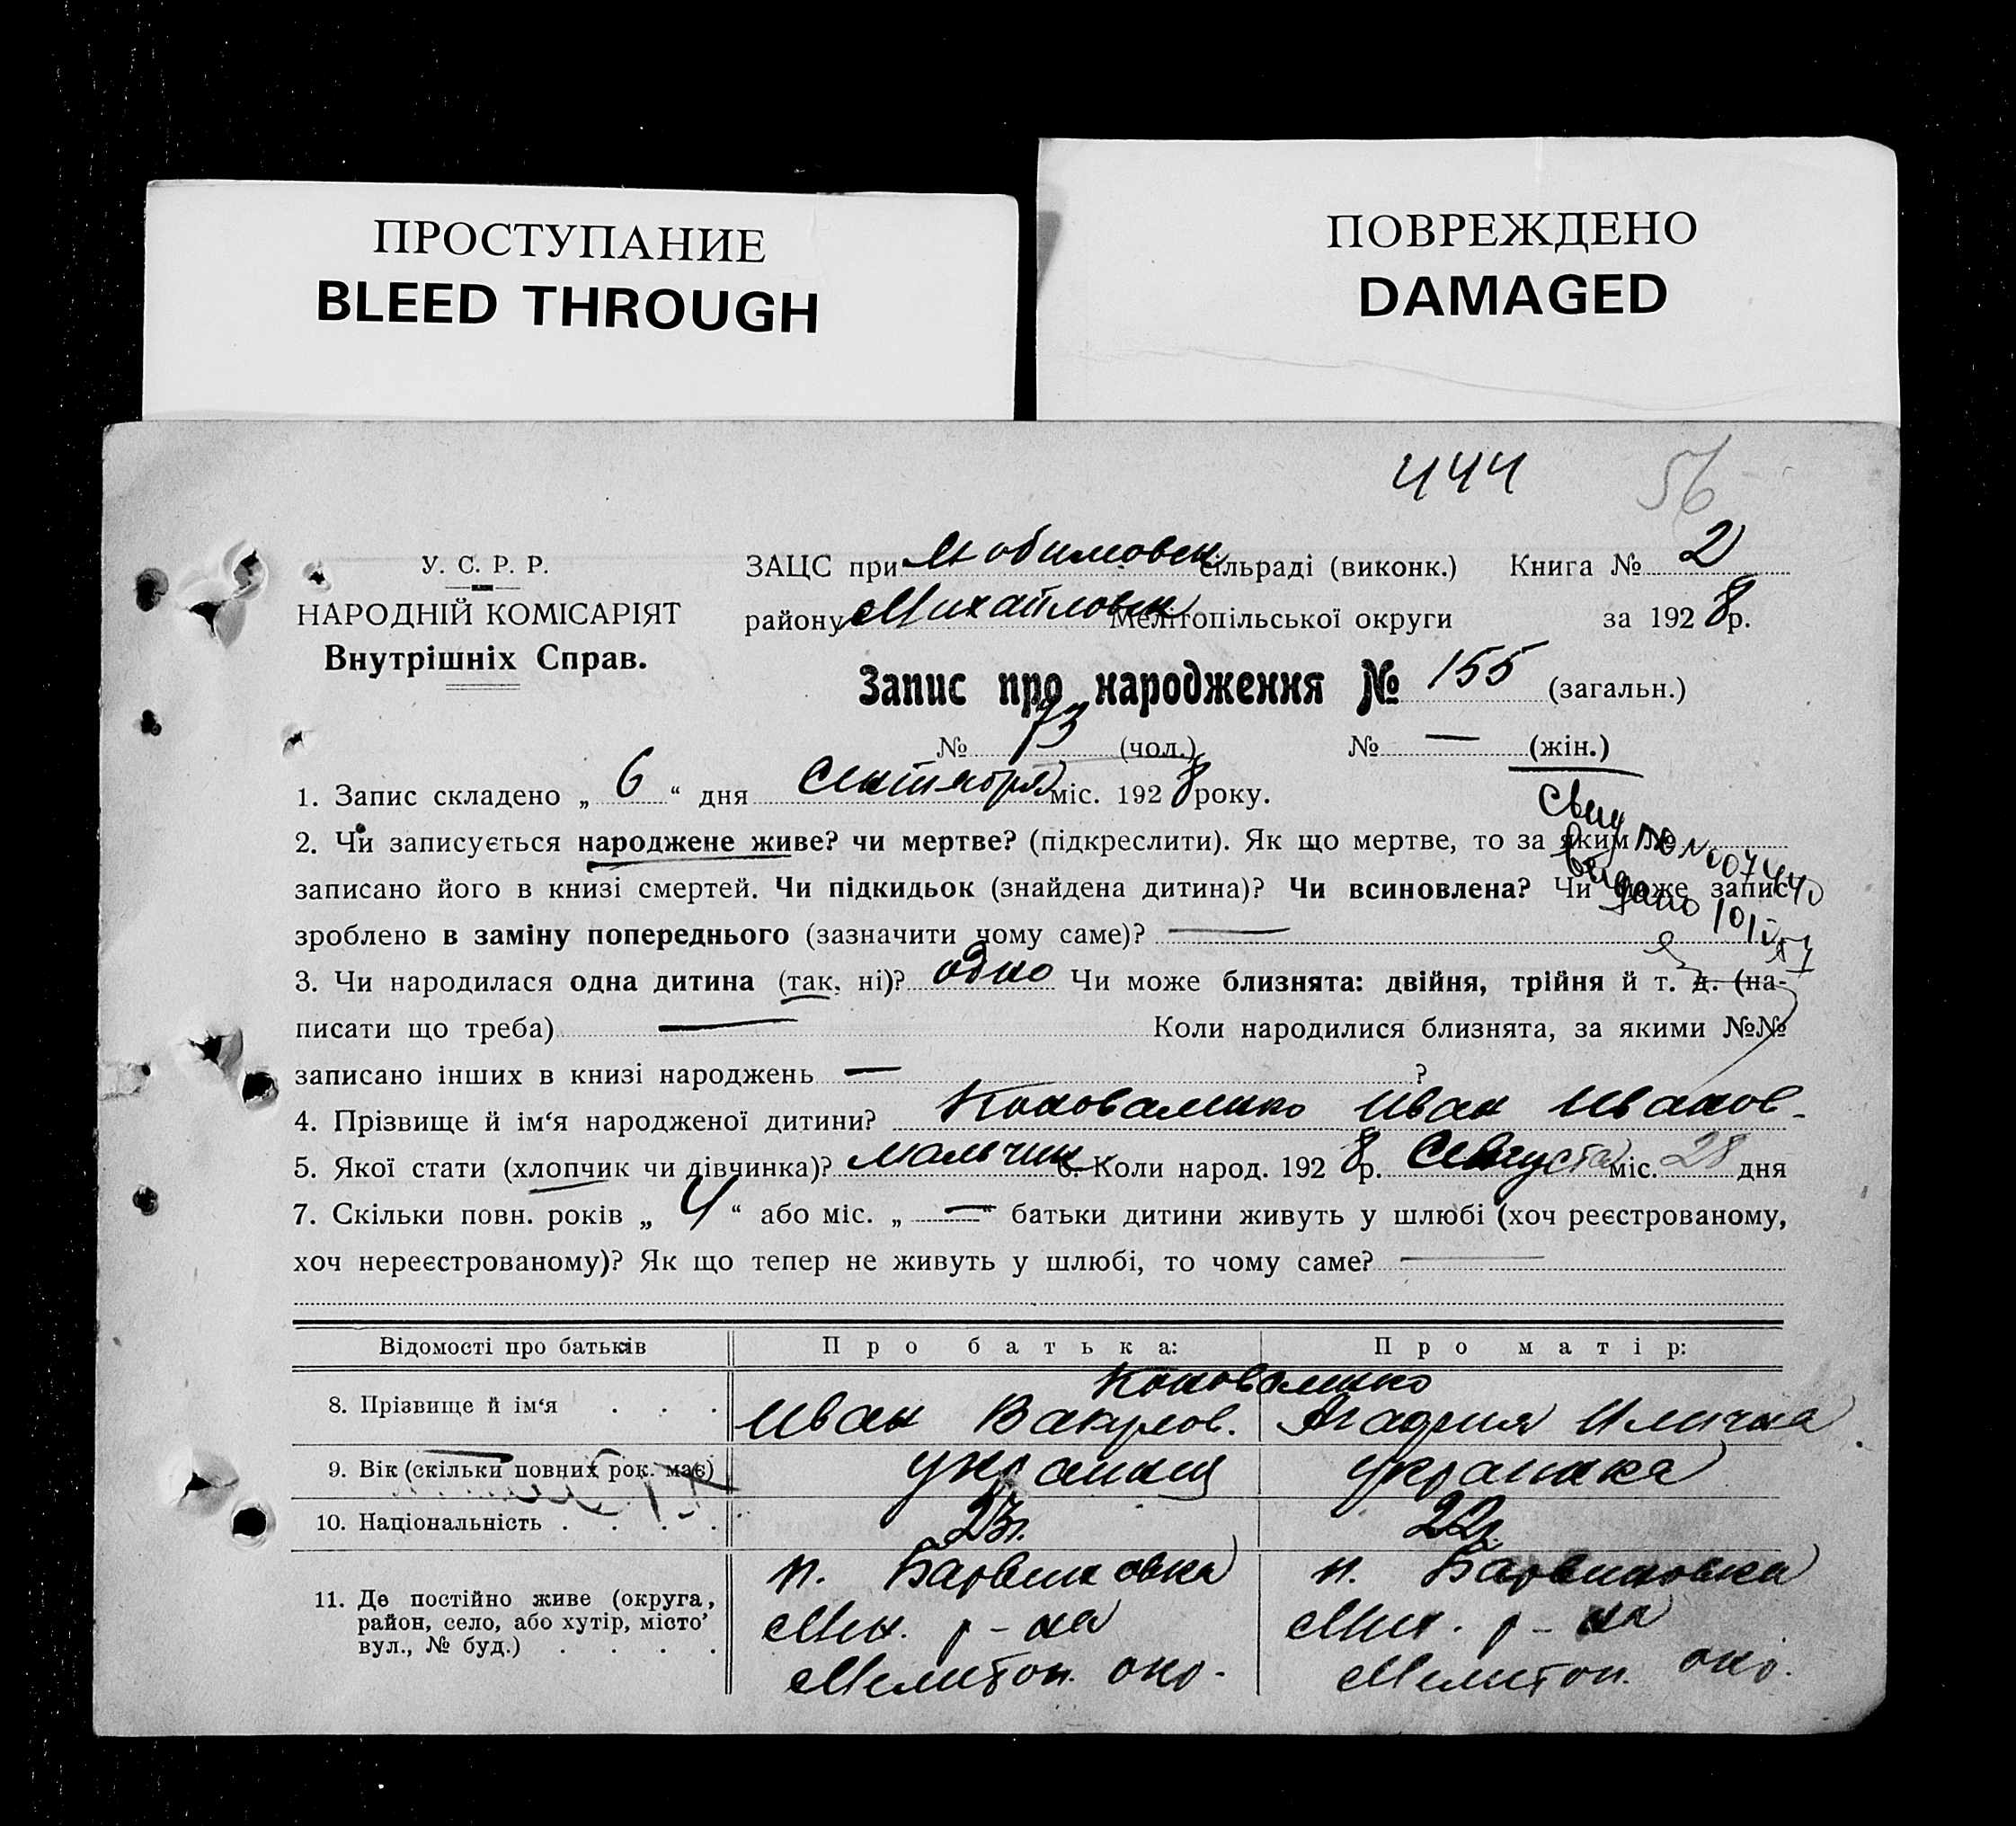 ПРОСТУПАНИЕ
BLEED THROUGH
ПОВРЕЖДЕНО
DAMAGED
444
56
У. С. Р. Р.
НАРОДНІЙ КОМІСАРІЯТ
Внутрішніх Справ.
ЗАЦС при Любимовск сільраді (виконк.) Книга № 2
району Михайловск Мелітопільської округи за 1928 р.
Запис про народження № 155 (загальн.)
№ 73 (чол.) № — (жін.)
1. Запис складено „ 6 “ дня Сентября міс. 1928 року.
2. Чи записується народжене живе? чи мертве? (підкреслити). Як що мертве, то за яким №
записано його в книзі смертей. Чи підкидьок (знайдена дитина)? Чи всиновлена? Чи може запис
зроблено в заміну попереднього (зазначити чому саме)? —
3. Чи народилася одна дитина (так, ні)? одно Чи може близнята: двійня, трійня й т. д. (на-
писати що треба) — Коли народилися близнята, за якими №№
записано інших в книзі народжень — ?
4. Прізвище й ім‘я народженої дитини? Коноваленко Иван Иванов.
5. Якої стати (хлопчик чи дівчинка)? мальчик 6. Коли народ. 1928 р. Августа міс. 28 дня
7. Скільки повн. років „ 4 “ або міс. „ — “ батьки дитини живуть у шлюбі (хоч реєстрованому,
хоч нереєстрованому)? Як що тепер не живуть у шлюбі, то чому саме? —
Свид ЛЮ № 007440
видано
Відомості про батьків Про батька: Про матір:
Коноваленко
8. Прізвище й ім‘я . . . Иван Вакулов. Агафия Илична
9. Вік (скільки повних рок. має) украинц украинка
10. Національність . . . . 23 г. 22 г.
11. Де постійно живе (округа,
район, село, або хутір, місто’
вул., № буд.) . . . .
п. Барвиновка
Мих. р-на
Мелитоп. окр.
п. Барвиновка
Мих. р-на
Мелитоп. окр.